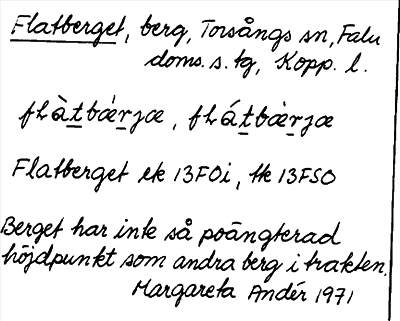 Flatberget, berg, Torsångs sn, Falu
doms. s. tg, Kopp. l.
fḷàt̲bær̲jæ, fḷát̲bæ̀r̲jæ
Flatberget ek 13F0i, tk 13FSO
Berget har inte så poängterad
höjdpunkt som andra berg i trakten.
Margareta Andér 1971